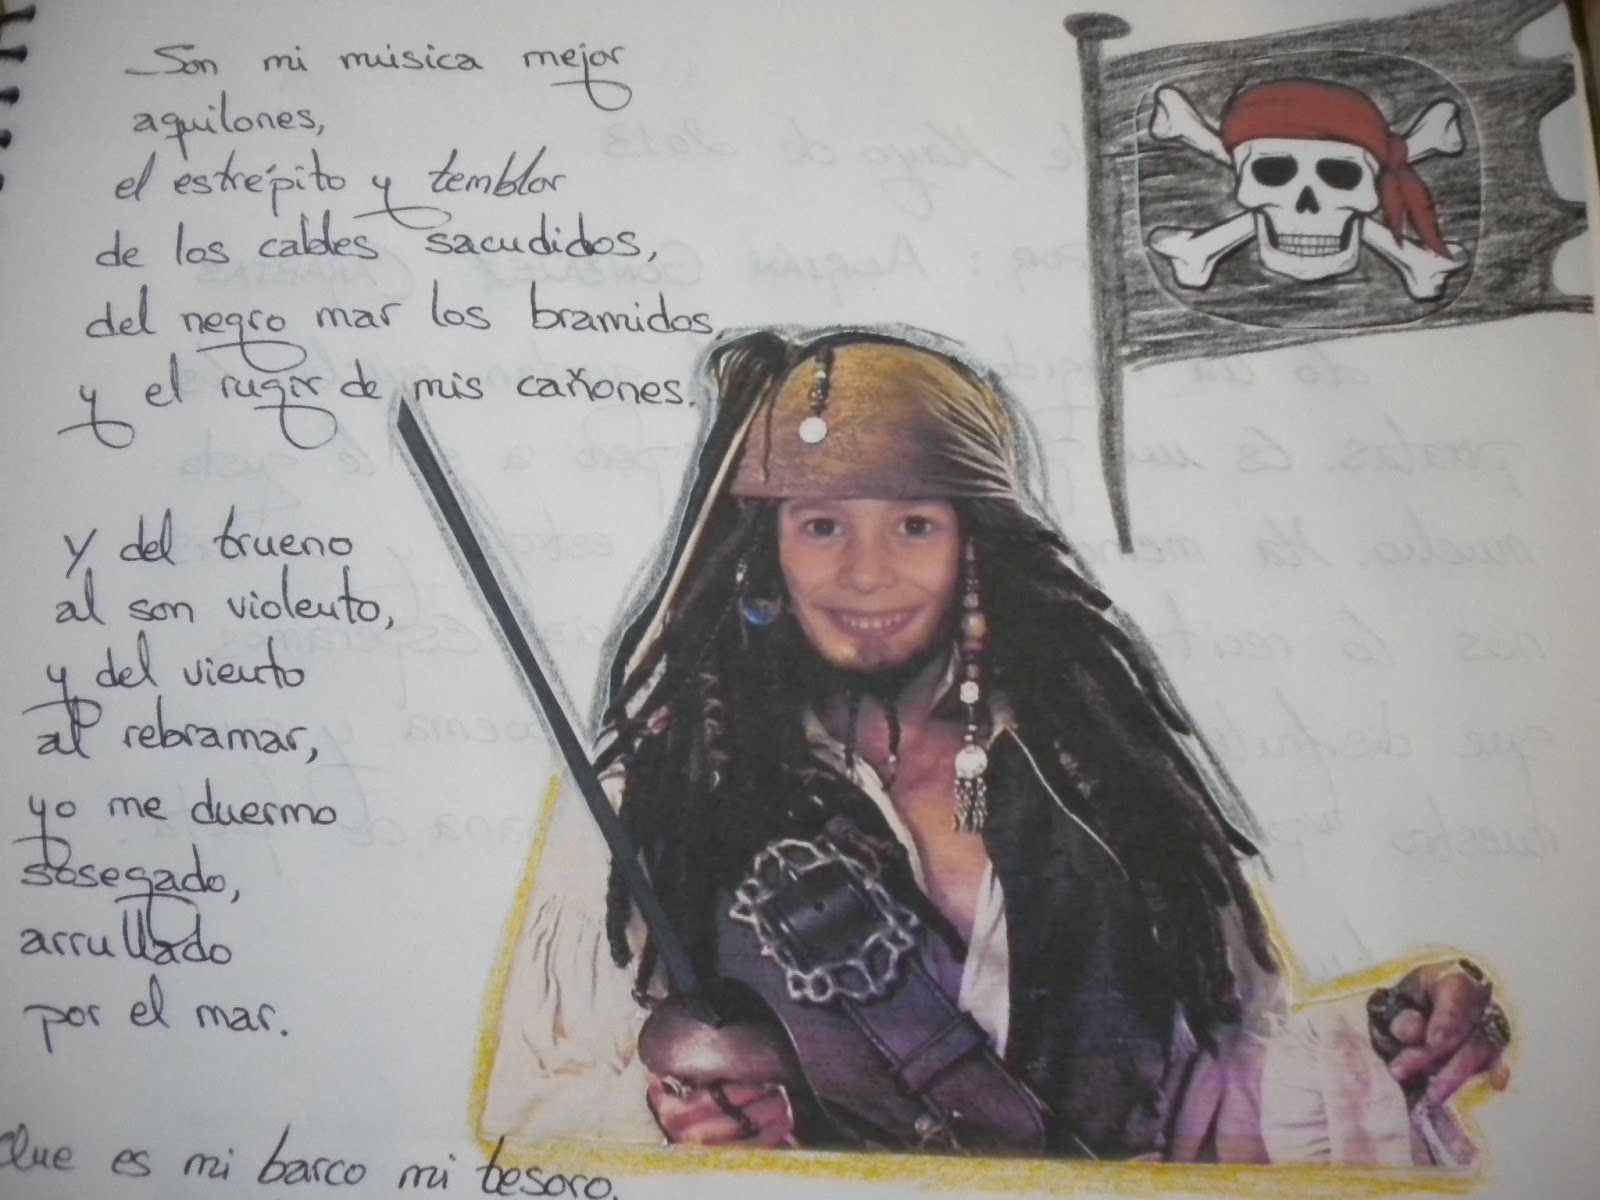 Son mi música mejor
aquilones,
el estrépito y temblor
de los cables sacudidos,
del negro mar los bramidos
y el rugir de mis cañones.
Y del trueno
al son violento,
y del viento
al rebramar,
yo me duermo
sosegado,
arrullado
por el mar.
Que es mi barco mi tesoro.